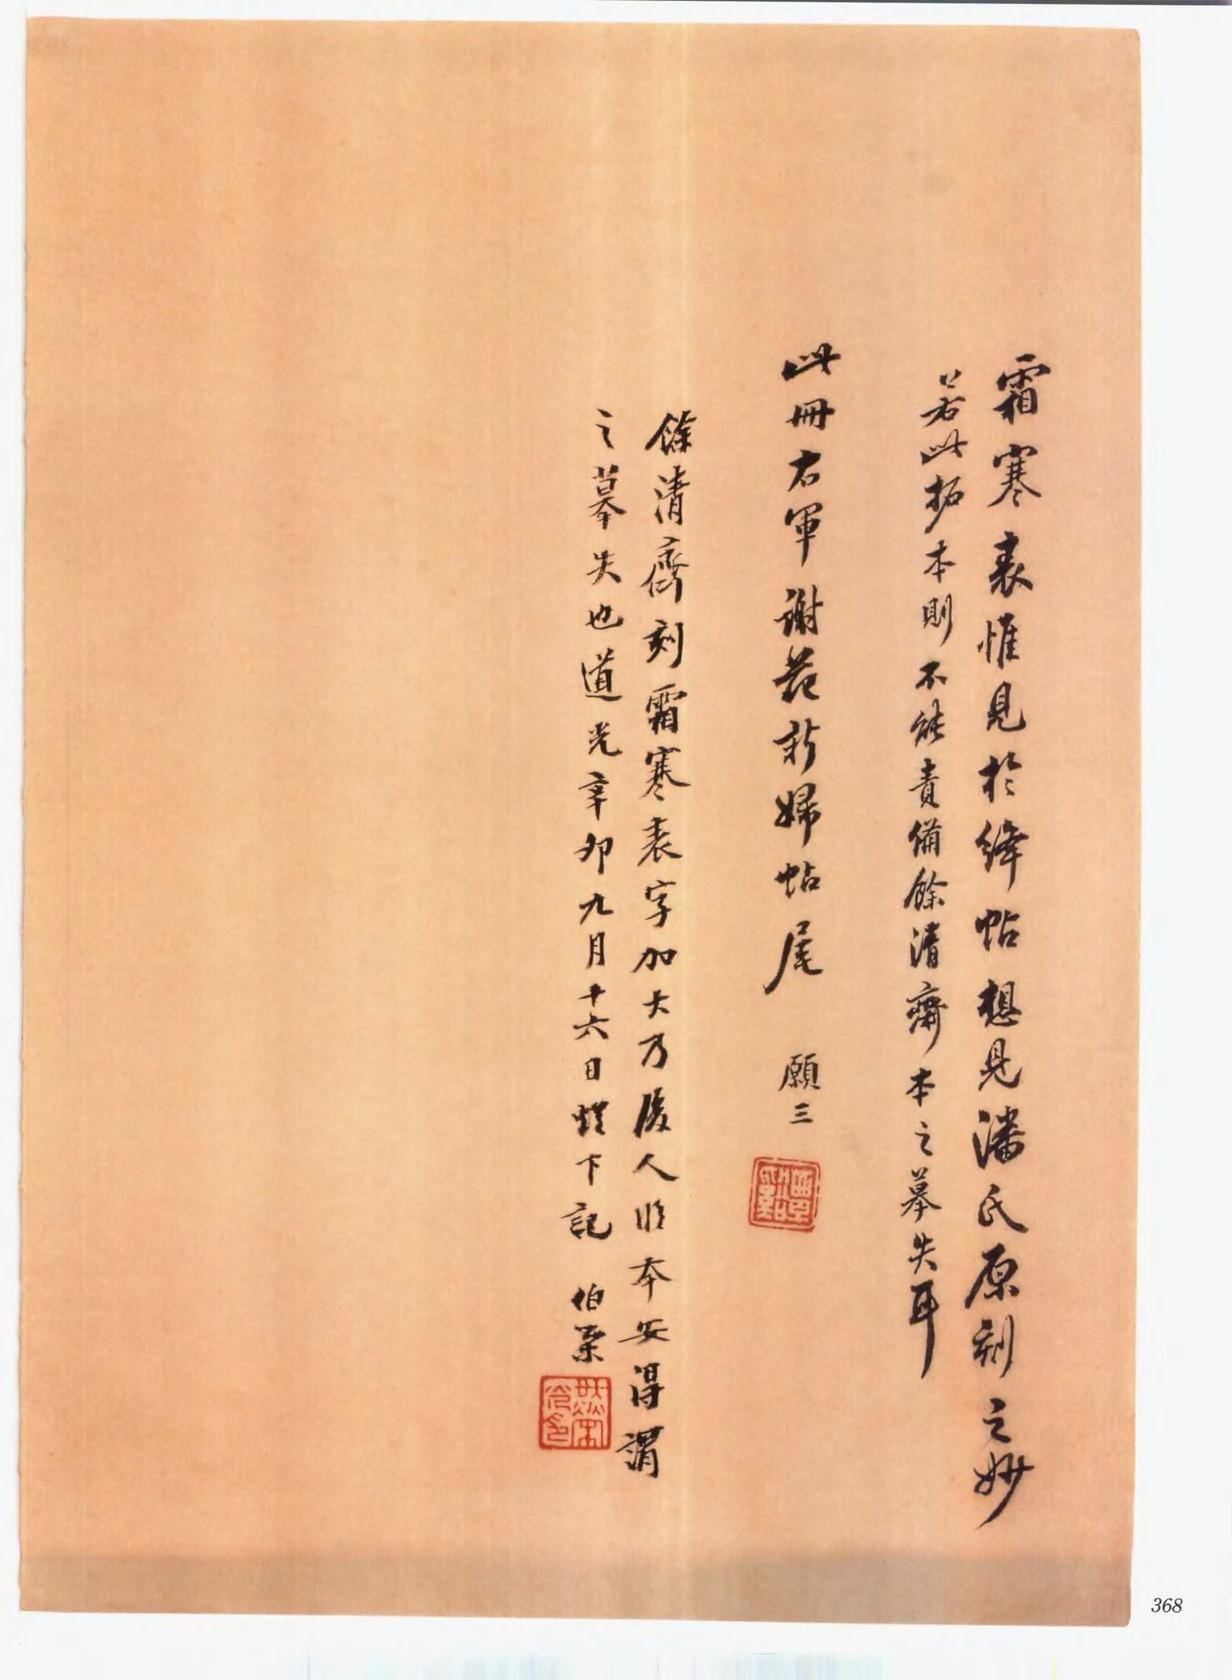 霜寒表惟見於絳帖想見潘氏原刻之妙
若此拓本則不能責備餘清齋本之摹失耳
此冊右軍謝範新婦帖尾 願三
餘清齋刻霜寒表字加大乃後人臨本安得謂
之摹失也道光辛卯九月十六日鐙下記 伯榮
368